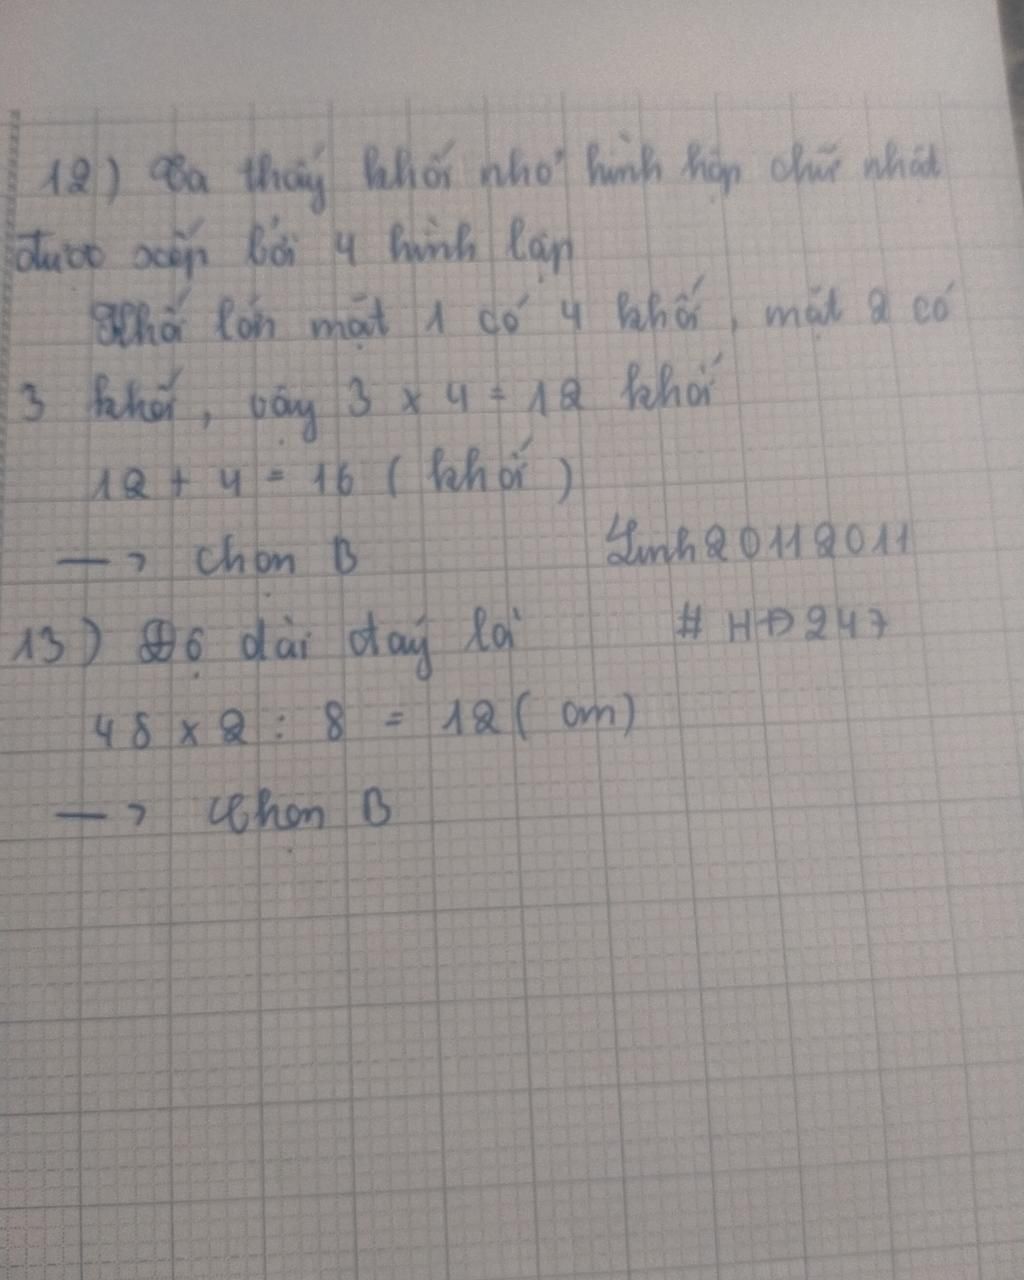 12) Ta thấy khối nhỏ hình hộp chữ nhật
được xếp bởi 4 hình lập
Khối lớn mặt 1 có 4 khối, mặt 2 có
3 khối, vậy 3 x 4 = 12 khối
12 + 4 = 16 ( khối )
—> Chọn B
Linh20112011
13) Độ dài đáy là
# HĐ247
48 x 2 : 8 = 12 ( cm)
—> Chọn B